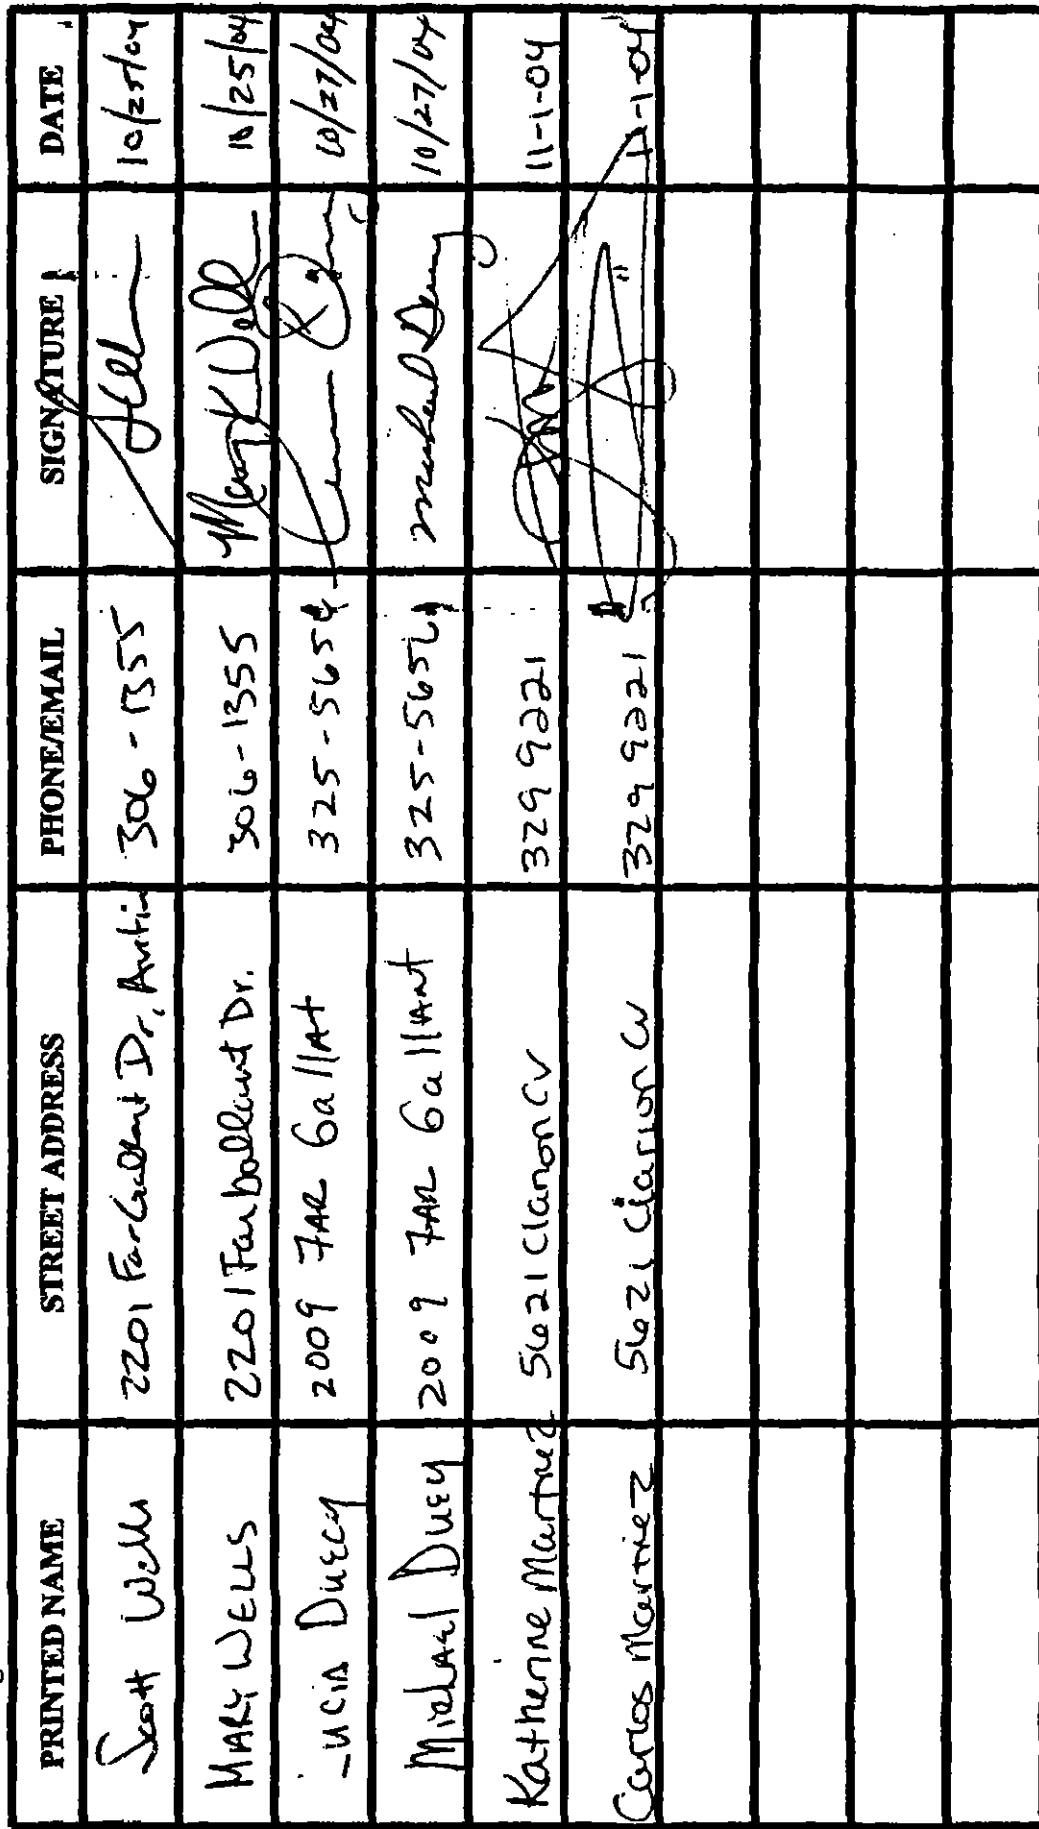 PRINTED NAME STREET ADDRESS PHONE/EMAIL SIGNATURE DATE
Scott Wells 2201 Far Gallant Dr, Austin 306-1355 10/25/04
MARY WELLS 2201 Far Gallant Dr. 306-1355 Mary K Wells 10/25/04
Lucia 2009 FAR GallAt 325-5654 10/27/04
MichAel DuEy 2009 FAR GallAnt 325-5654 Michael 10/27/04
Katherine Martinez 5621 Clarion Cv 329 9221 11-1-04
Carlos Martinez 5621 Clarion Cv 329 9221 11-1-04